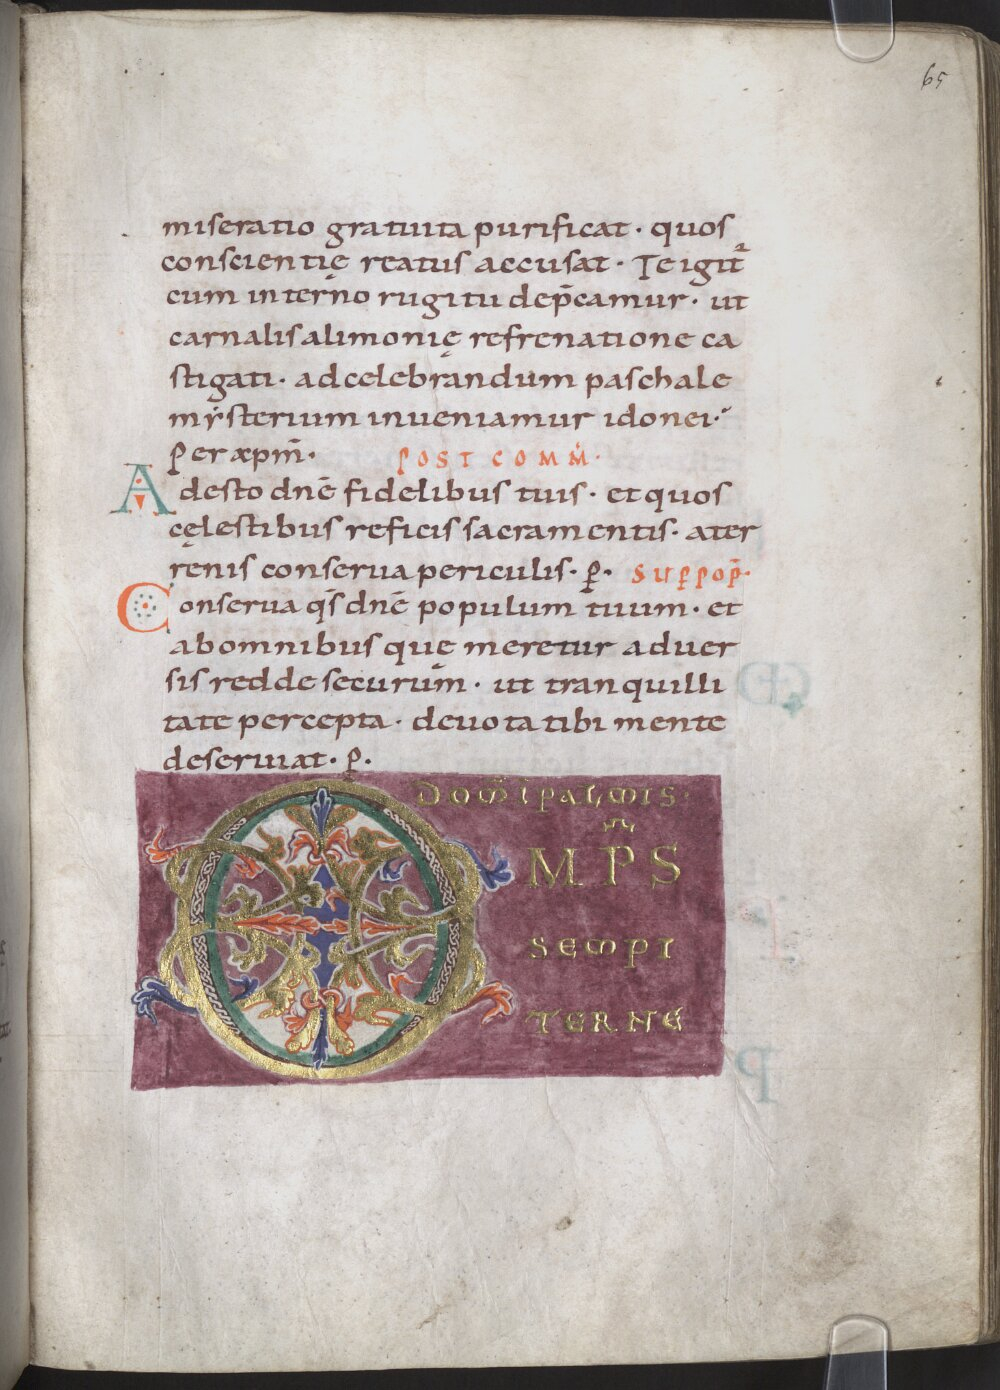 65
miseratio gratuita purificat · quos
conscientię reatus accusat · Te igit᷑
cum interno rugitu dep̄camur · ut
carnalis alimonię refrenatione ca
stigati · ad celebrandum paschale
mẏsterium inueniamur idonei ·
Per xpm̄ · POST COMM̄ ·
Adesto dn̄e fidelibus tuis · et quos
cęlestibus reficis sacramentis · a ter
renis conserua periculis · P̲ · SUP̲ POP̄ ·
Conserua q̄s dn̄e populum tuum · et
ab omnibus quę meretur aduer
sis redde securum · ut tranquilli
tate percepta · deuota tibi mente
deseruiat · P̲ ·
DOM̄ I PALMIS ·
OMPS
SEMPI
TERNE